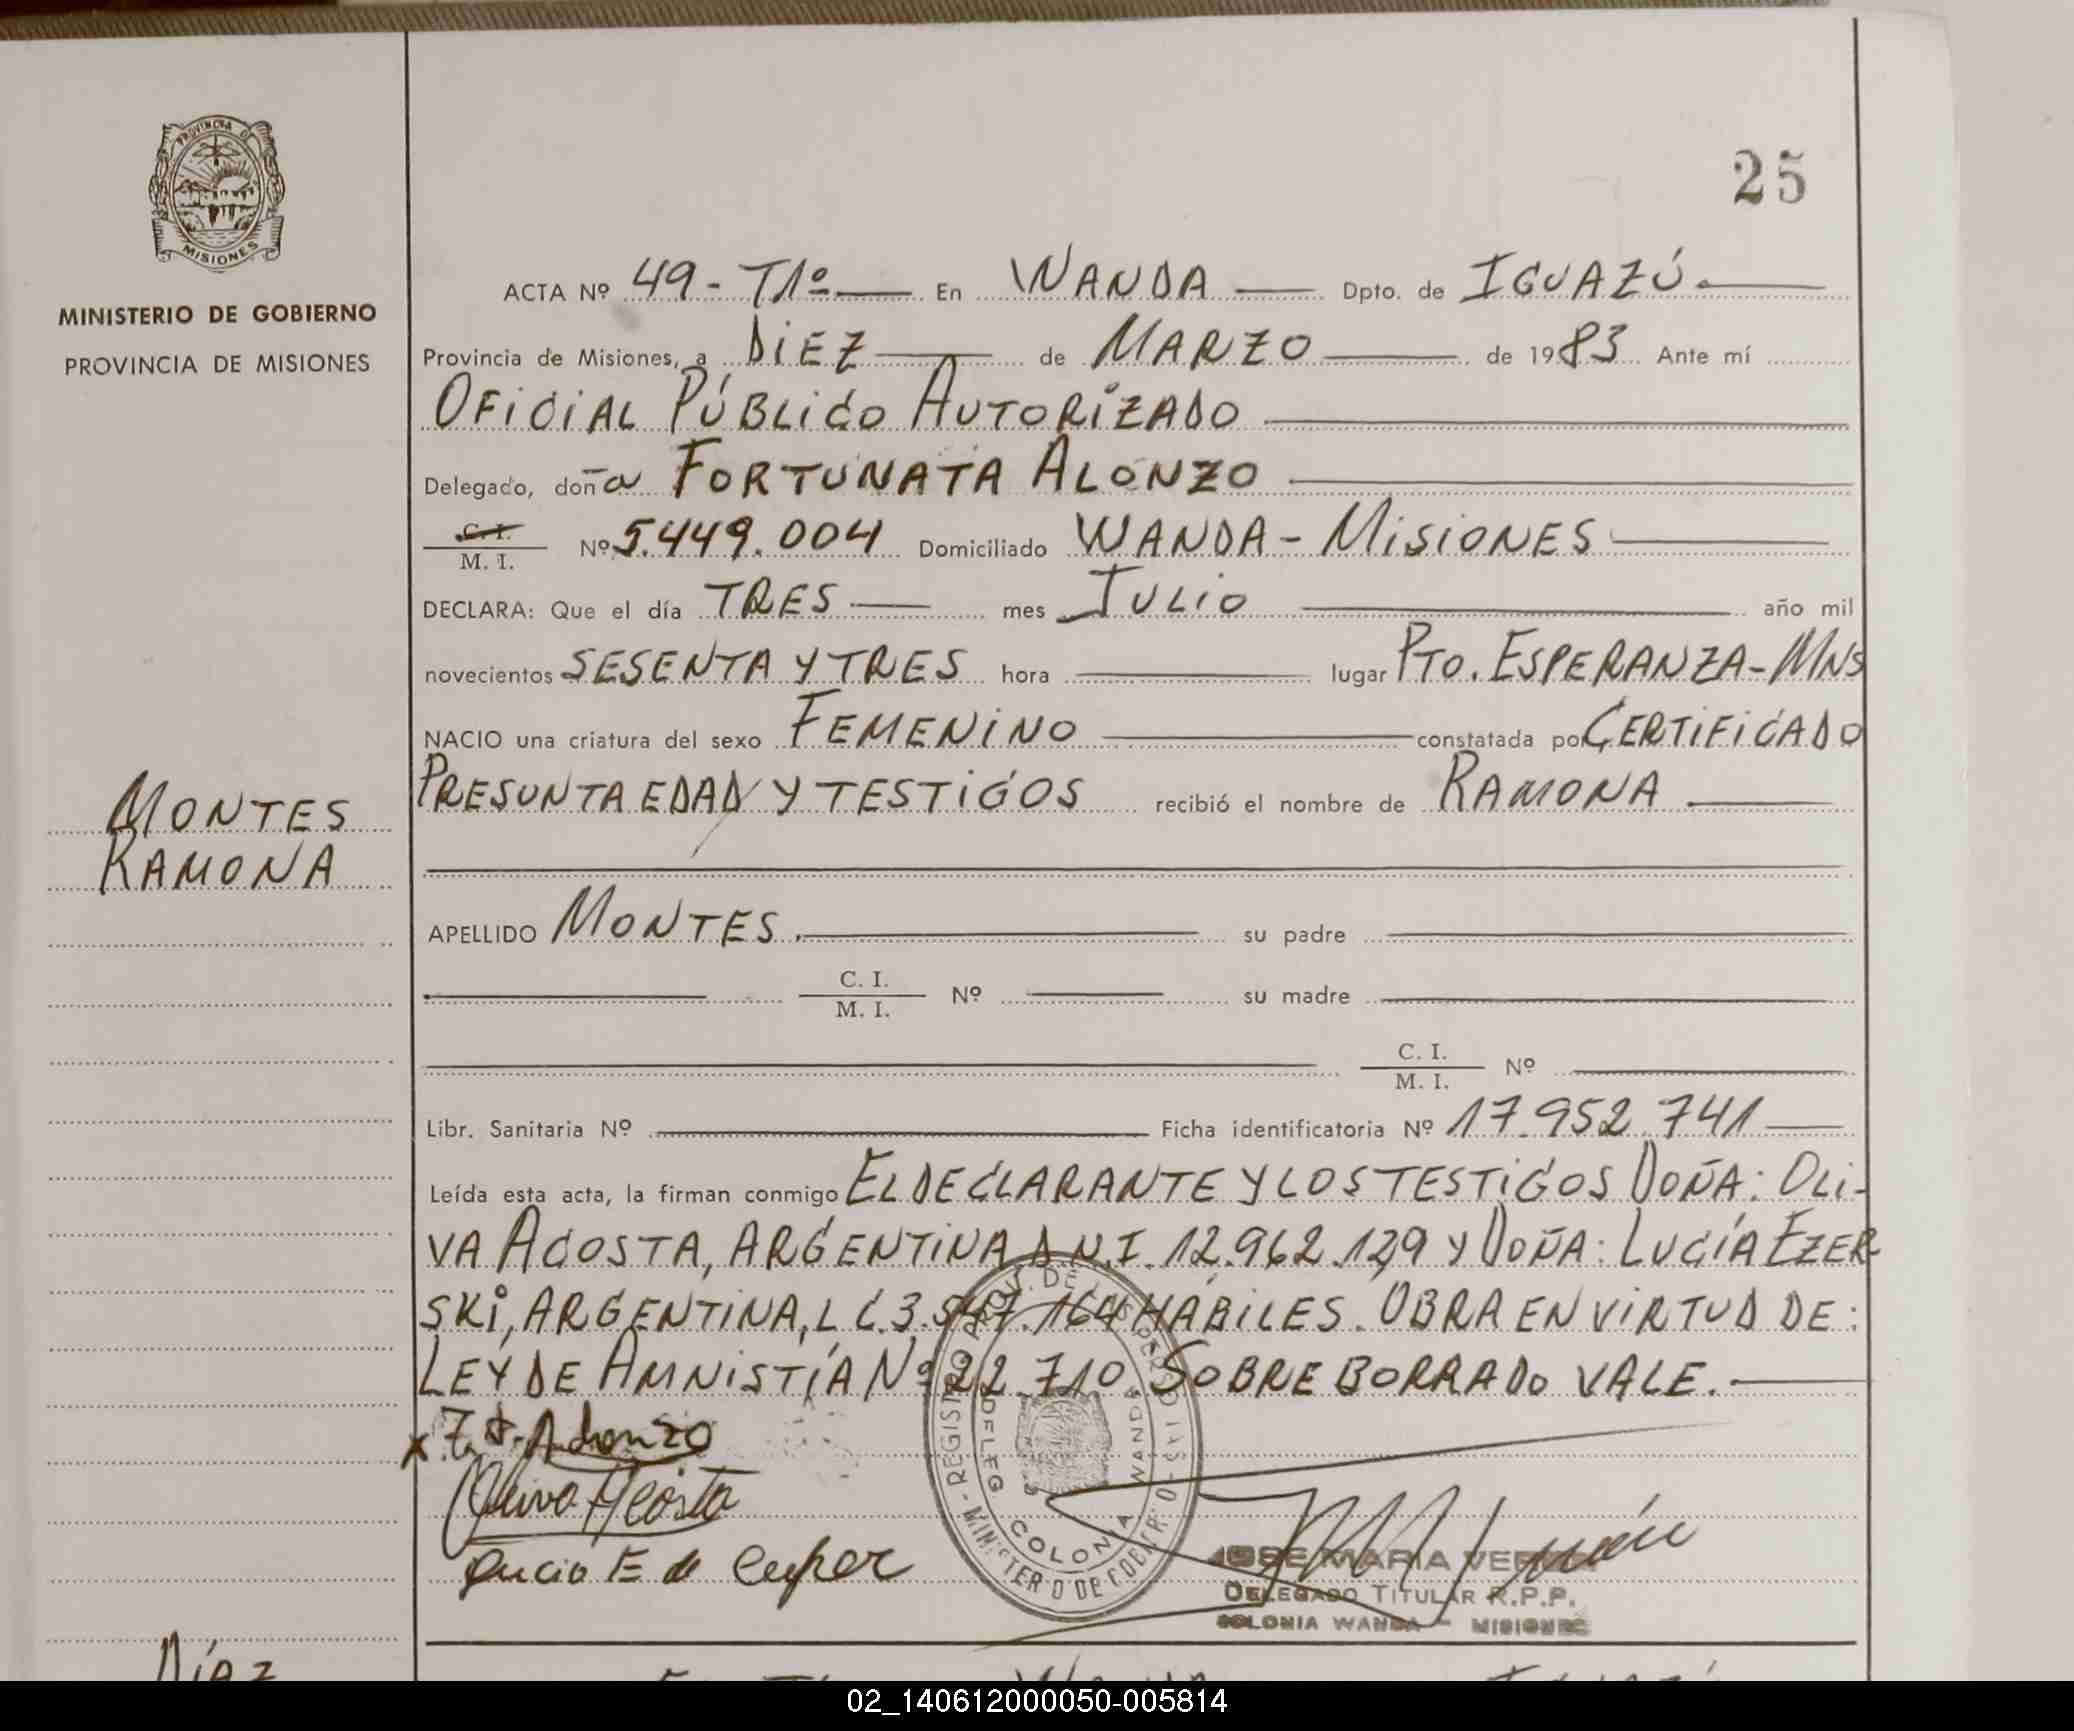 25
PROVINCIA D
MISIONES
MINISTERIO DE GOBIERNO
PROVINCIA DE MISIONES
ACTA Nº 49 - T1º En WANDA Dpto. de IGUAZÚ.
Provincia de Misiones, a DIEZ de MARZO de 1983 Ante mí
OFICIAL PÚBLICO AUTORIZADO
Delegado, doña FORTUNATA ALONZO
C. I. / M. I. Nº 5.449.004 Domiciliado WANDA - MISIONES
DECLARA: Que el día TRES mes JULIO año mil
novecientos SESENTA Y TRES hora lugar PTO. ESPERANZA - MNS
NACIO una criatura del sexo FEMENINO constatada por CERTIFICADO
PRESUNTA EDAD Y TESTIGOS recibió el nombre de RAMONA
MONTES
RAMONA
APELLIDO MONTES. su padre
C. I. / M. I. Nº su madre
C. I. / M. I. Nº
Libr. Sanitaria Nº Ficha identificatoria Nº 17.952.741
Leída esta acta, la firman conmigo EL DECLARANTE Y LOS TESTIGOS DOÑA: OLI-
VA ACOSTA, ARGENTINA D.N.I. 12.962.129 Y DOÑA: LUCÍA EZER
SKI, ARGENTINA, L C. 3.547.164 HÁBILES. OBRA EN VIRTUD DE:
LEY DE AMNISTÍA Nº 22.710 SOBRE BORRADO VALE.
x Alonzo
Oliva Acosta
Lucia E de
REGISTRO PROV. DE LAS PERSONAS - MINISTERIO DE GOBIERNO
DELEG COLONIA WANDA
JOSE MARIA
DELEGADO TITULAR R.P.P.
COLONIA WANDA - MISIONES
DÍAZ
02_140612000050-005814